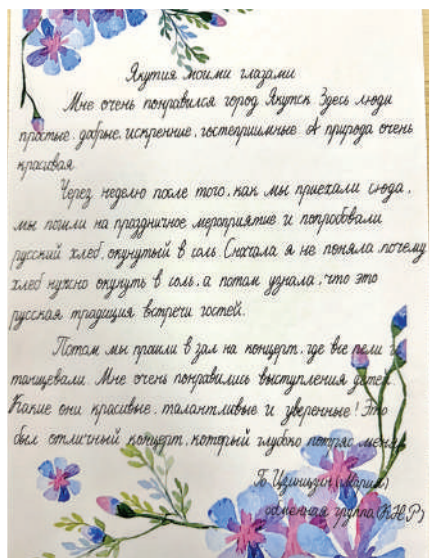 Якутия моими глазами
Мне очень понравился город Якутск Здесь люди
простые, добрые, искренние, гостеприимные А природа очень
красивая
Через неделю после того, как мы приехали сюда,
мы пошли на праздничное мероприятие и попробовали
русский хлеб, окунутый в соль. Сначала я не поняла, почему
хлеб нужно окунуть в соль, а потом узнала, что это
русская традиция встречи гостей.
Потом мы прошли в зал на концерт, где все пели и
танцевали. Мне очень понравились выступления детей.
Какие они красивые, талантливые и уверенные! Это
был отличный концерт, который глубоко потряс меня
(Мария)
группа (КНР)